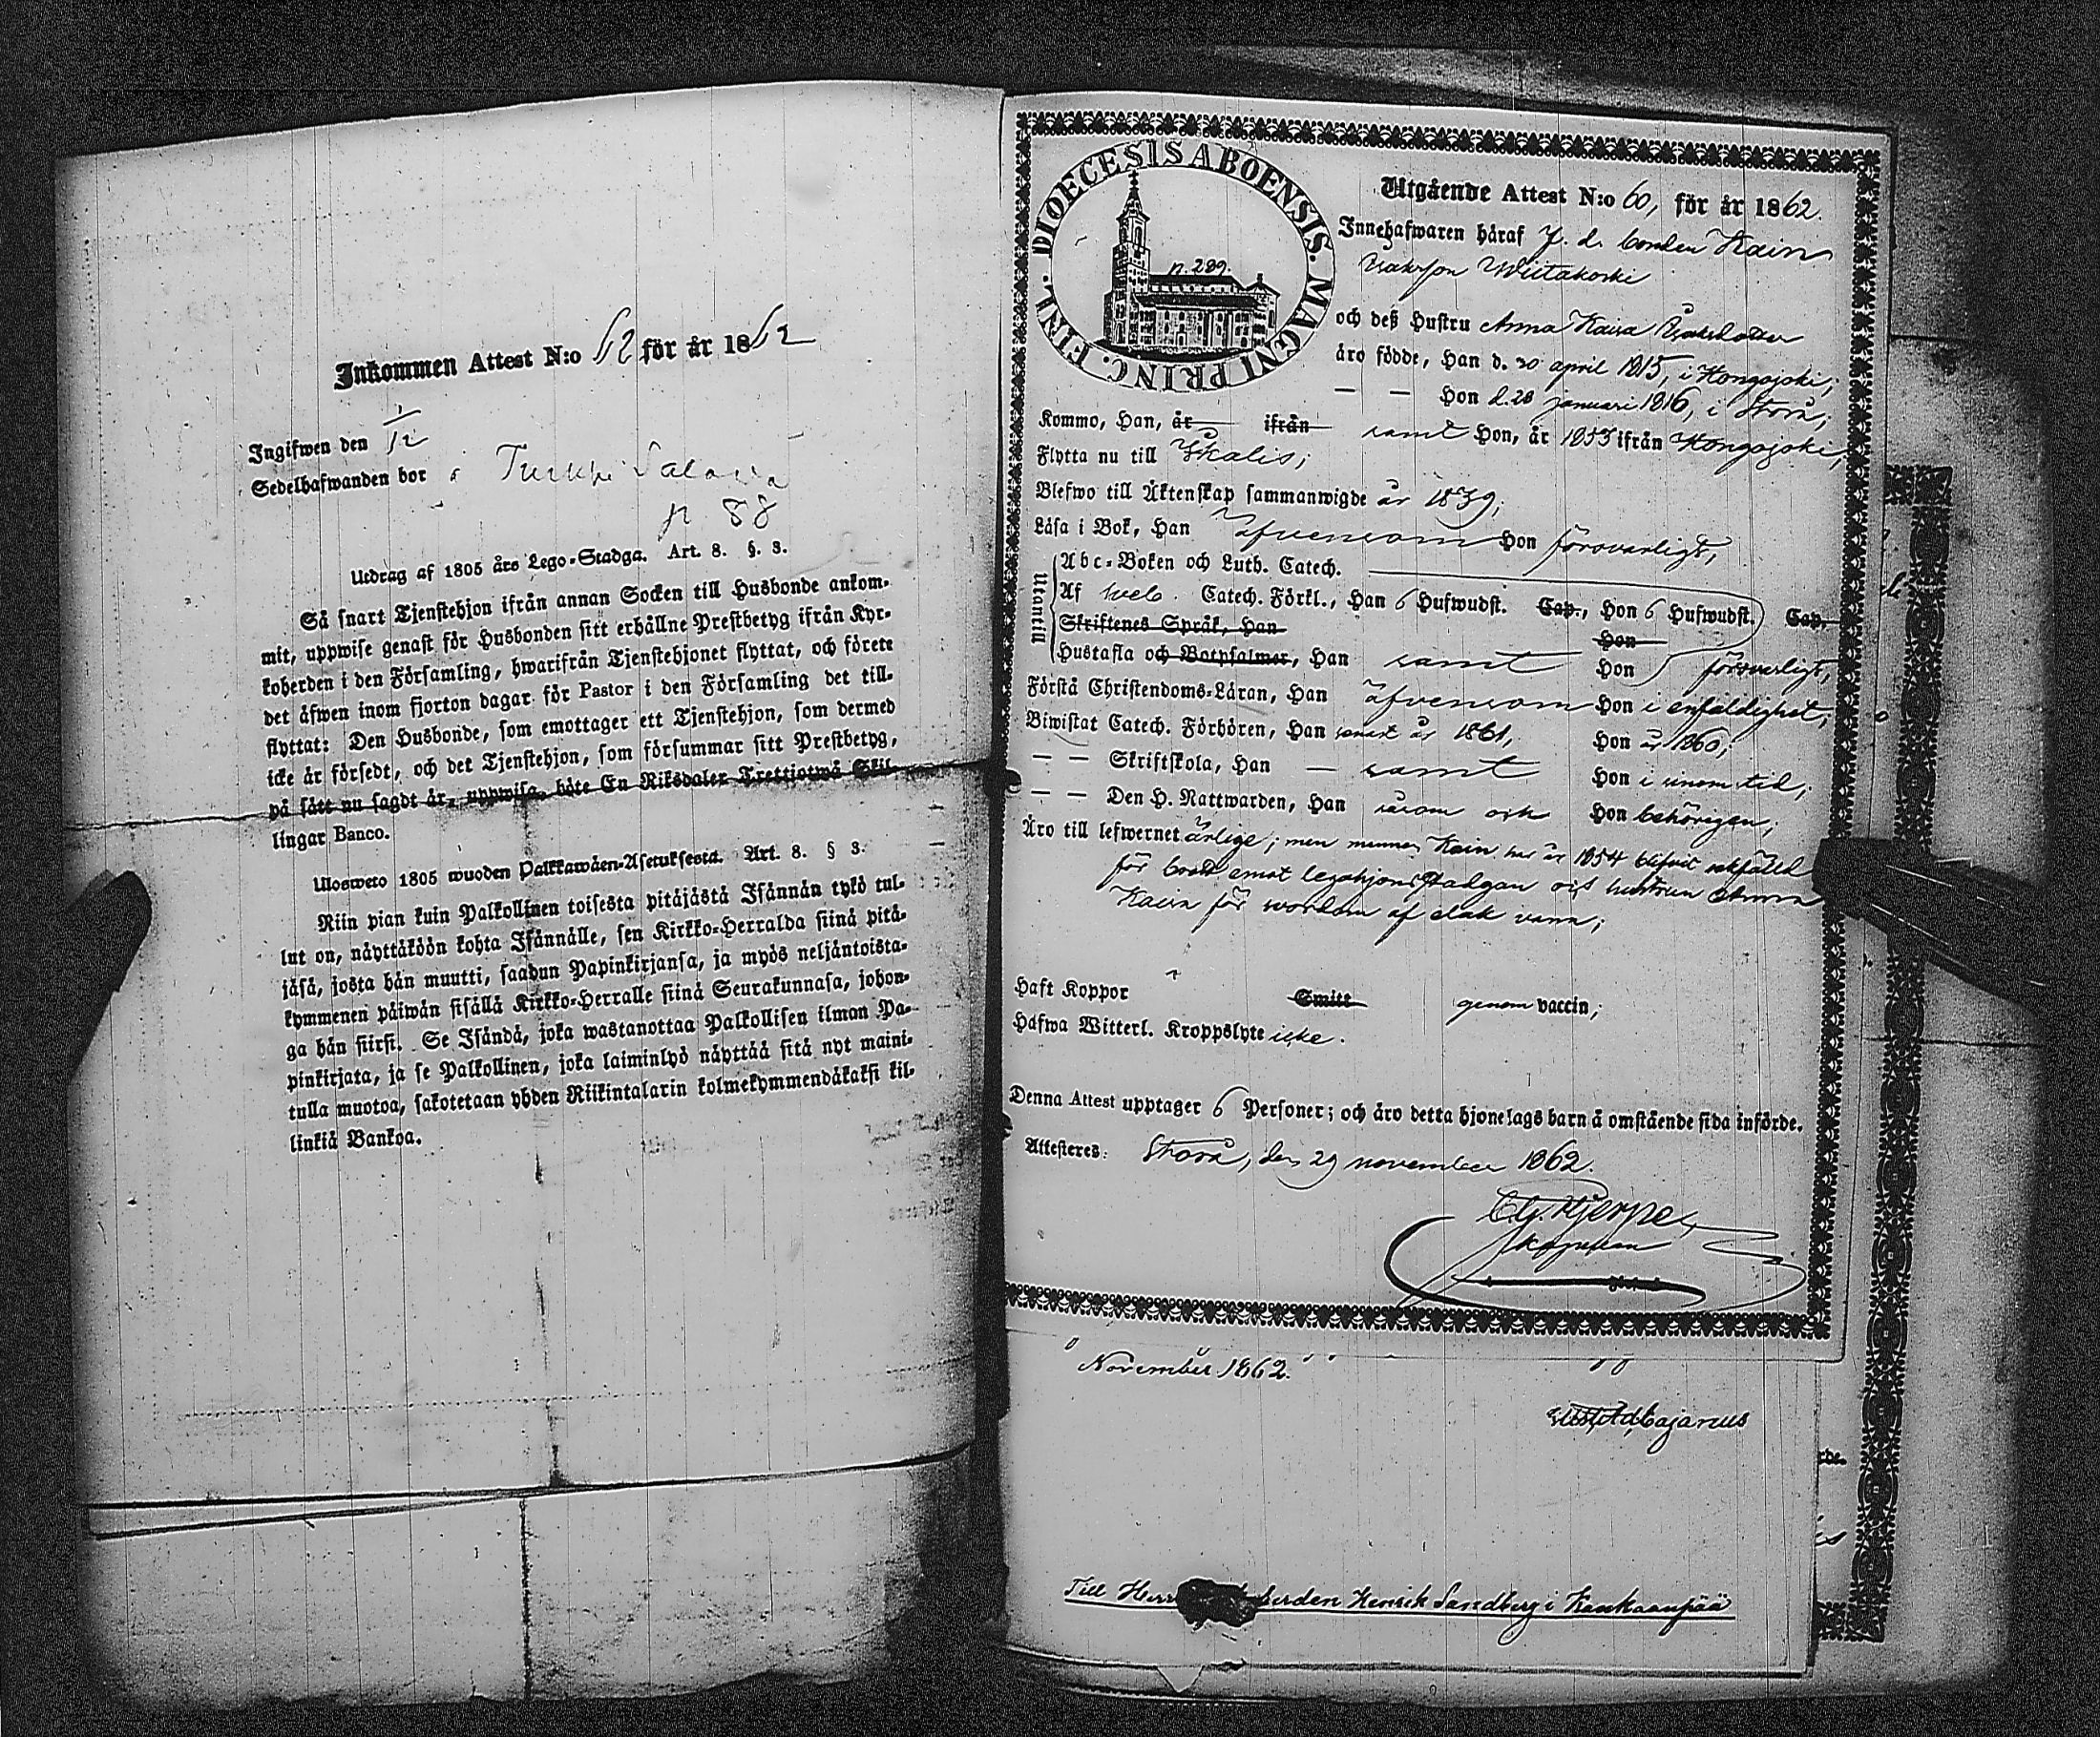 Inkommen Attest N:o 62 för år 1862
Ingifwen den 1/12
Sedelhafwanden bor i
p 88
Utdrag af 1805 års Lego-Stadga. Art. 8. §. 3.
Så snart Tjenstehjon ifrån annan Socken till Husbonde ankom-
mit, uppwise genast för Husbonden sitt erhållne Prestbetyg ifrån Kyr-
koherden i den Församling, hwarifrån Tjenstehjonet flyttat, och förete
det äfwen inom fjorton dagar för Pastor i den Församling det till-
flyttat: Den Husbonde, som emottager ett Tjenstehjon, som dermed
icke är försedt, och det Tjenstehjon, som försummar sitt Prestbetyg,
på sätt nu sagdt är, uppwisa, böte En Riksdaler Trettiotwå Skil-
lingar Banco.
Ulosweto 1805 wuoden Palkkawäen-Asetuksesta. Art. 8. § 3.
Niin pian kuin Palkollinen toisesta pitäjästä Isännän tykö tul-
lut on, näyttäköön kohta Isännälle, sen Kirkko-Herralda siinä pitä-
jäsä, josta hän muutti, saadun Papinkirjansa, ja myös neljäntoista-
kymmenen päiwän sisällä Kirkko-Herralle siinä Seurakunnasa, johon-
ga hän siirsi. Se Isändä, joka wastanottaa Palkollisen ilman Pa-
pinkirjata, ja se Palkollinen, joka laiminlyö näyttää sitä nyt maini-
tulla muotoa, sakotetaan yhden Riikintalarin kolmekymmendäkaksi kil-
linkiä Bankoa.
DIOECESIS ABOENSIS. MAGNI PRINC. FINL.
p. 289.
Utgående Attest N:o 60, för år 1862.
Innehafwaren häraf f. d. bonden Kain
Wiitakoski
och deß Hustru Anna Kaisa Isaksdotter
äro födde, Han d. 20 april 1815, i Kongajoki;
— — Hon d. 28 januari 1816, i Storå;
Kommo, Han, år ifrån samt Hon, år 1853 ifrån Kongajoki,
Flytta nu till Ikalis;
Blefwo till Äktenskap sammanwigde år 1839;
Läsa i Bok, Han äfvensom Hon försvarligt,
Utantill
Abc-Boken och Luth. Catech.
Af Sveb. Catech. Förkl., Han 6 Hufwudst. Cap., Hon 6 Hufwudst. Cap.
Skriftenes Språk, Han Hon
Hustafla och Botpsalmer, Han samt Hon försvarligt,
Förstå Christendoms-Läran, Han äfvensom Hon i enfaldighet,
Biwistat Catech. Förhören, Han senast år 1861, Hon år 1860;
— — Skriftskola, Han — samt Hon i sinom tid,
— — Den H. Nattwarden, Han såsom ock Hon behörigen;
Äro till lefwernet ärlige; men mannen Kain har år 1854 blifvit sakfälld
för brott emot legohjonsstadgan och hustrun Anna
Kaisa för af elak vana;
Haft Koppor Smitt genom vaccin;
Hafwa Witterl. Kroppslyte icke.
Denna Attest upptager 6 Personer; och äro detta hjonelags barn å omstående sida införde.
Attesteres: Storå, den 29 november 1862.
C. G. Hjerpe
Kapellan
November 1862.
Cajanus
Till Herr Henrik Sandberg i Kankaanpää